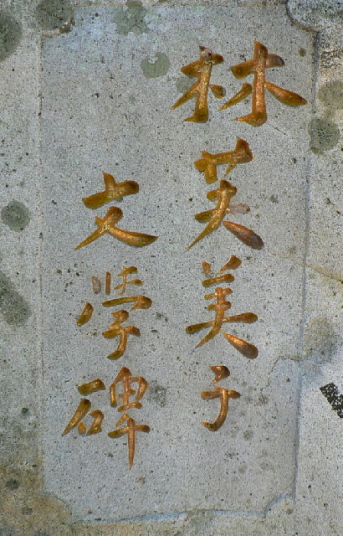 林芙美子
文学碑